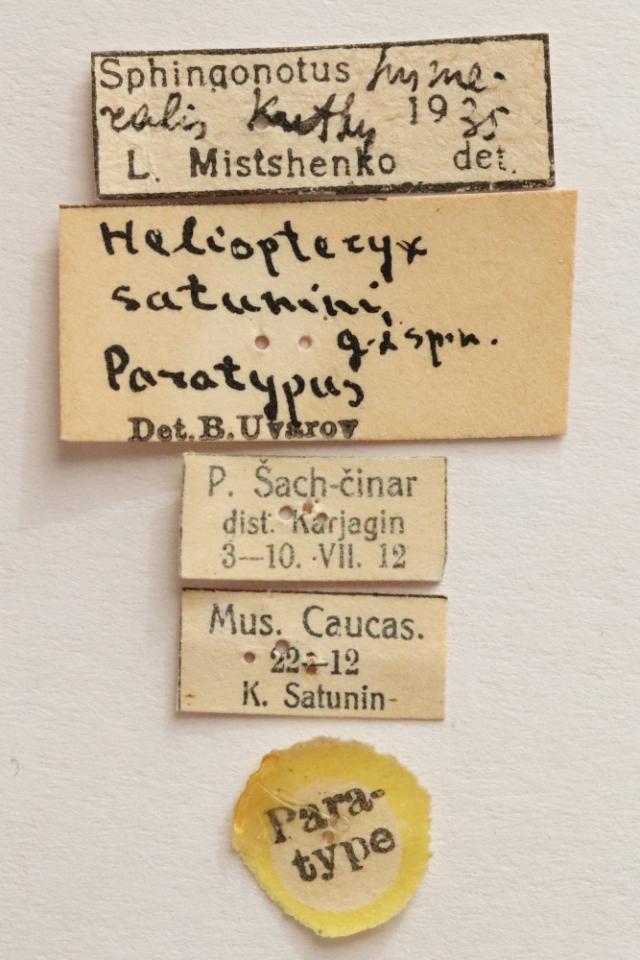 Sphingonotus hyme-
ralis Kuthy 1935
L. Mistshenko det.
Heliopteryx
satunini,
g. & sp. n.
Paratypus
Det. B. Uvarov
P. Šach-činar
dist. Karjagin
3—10. VII. 12
Mus. Caucas.
22—12
K. Satunin-
Para-
type